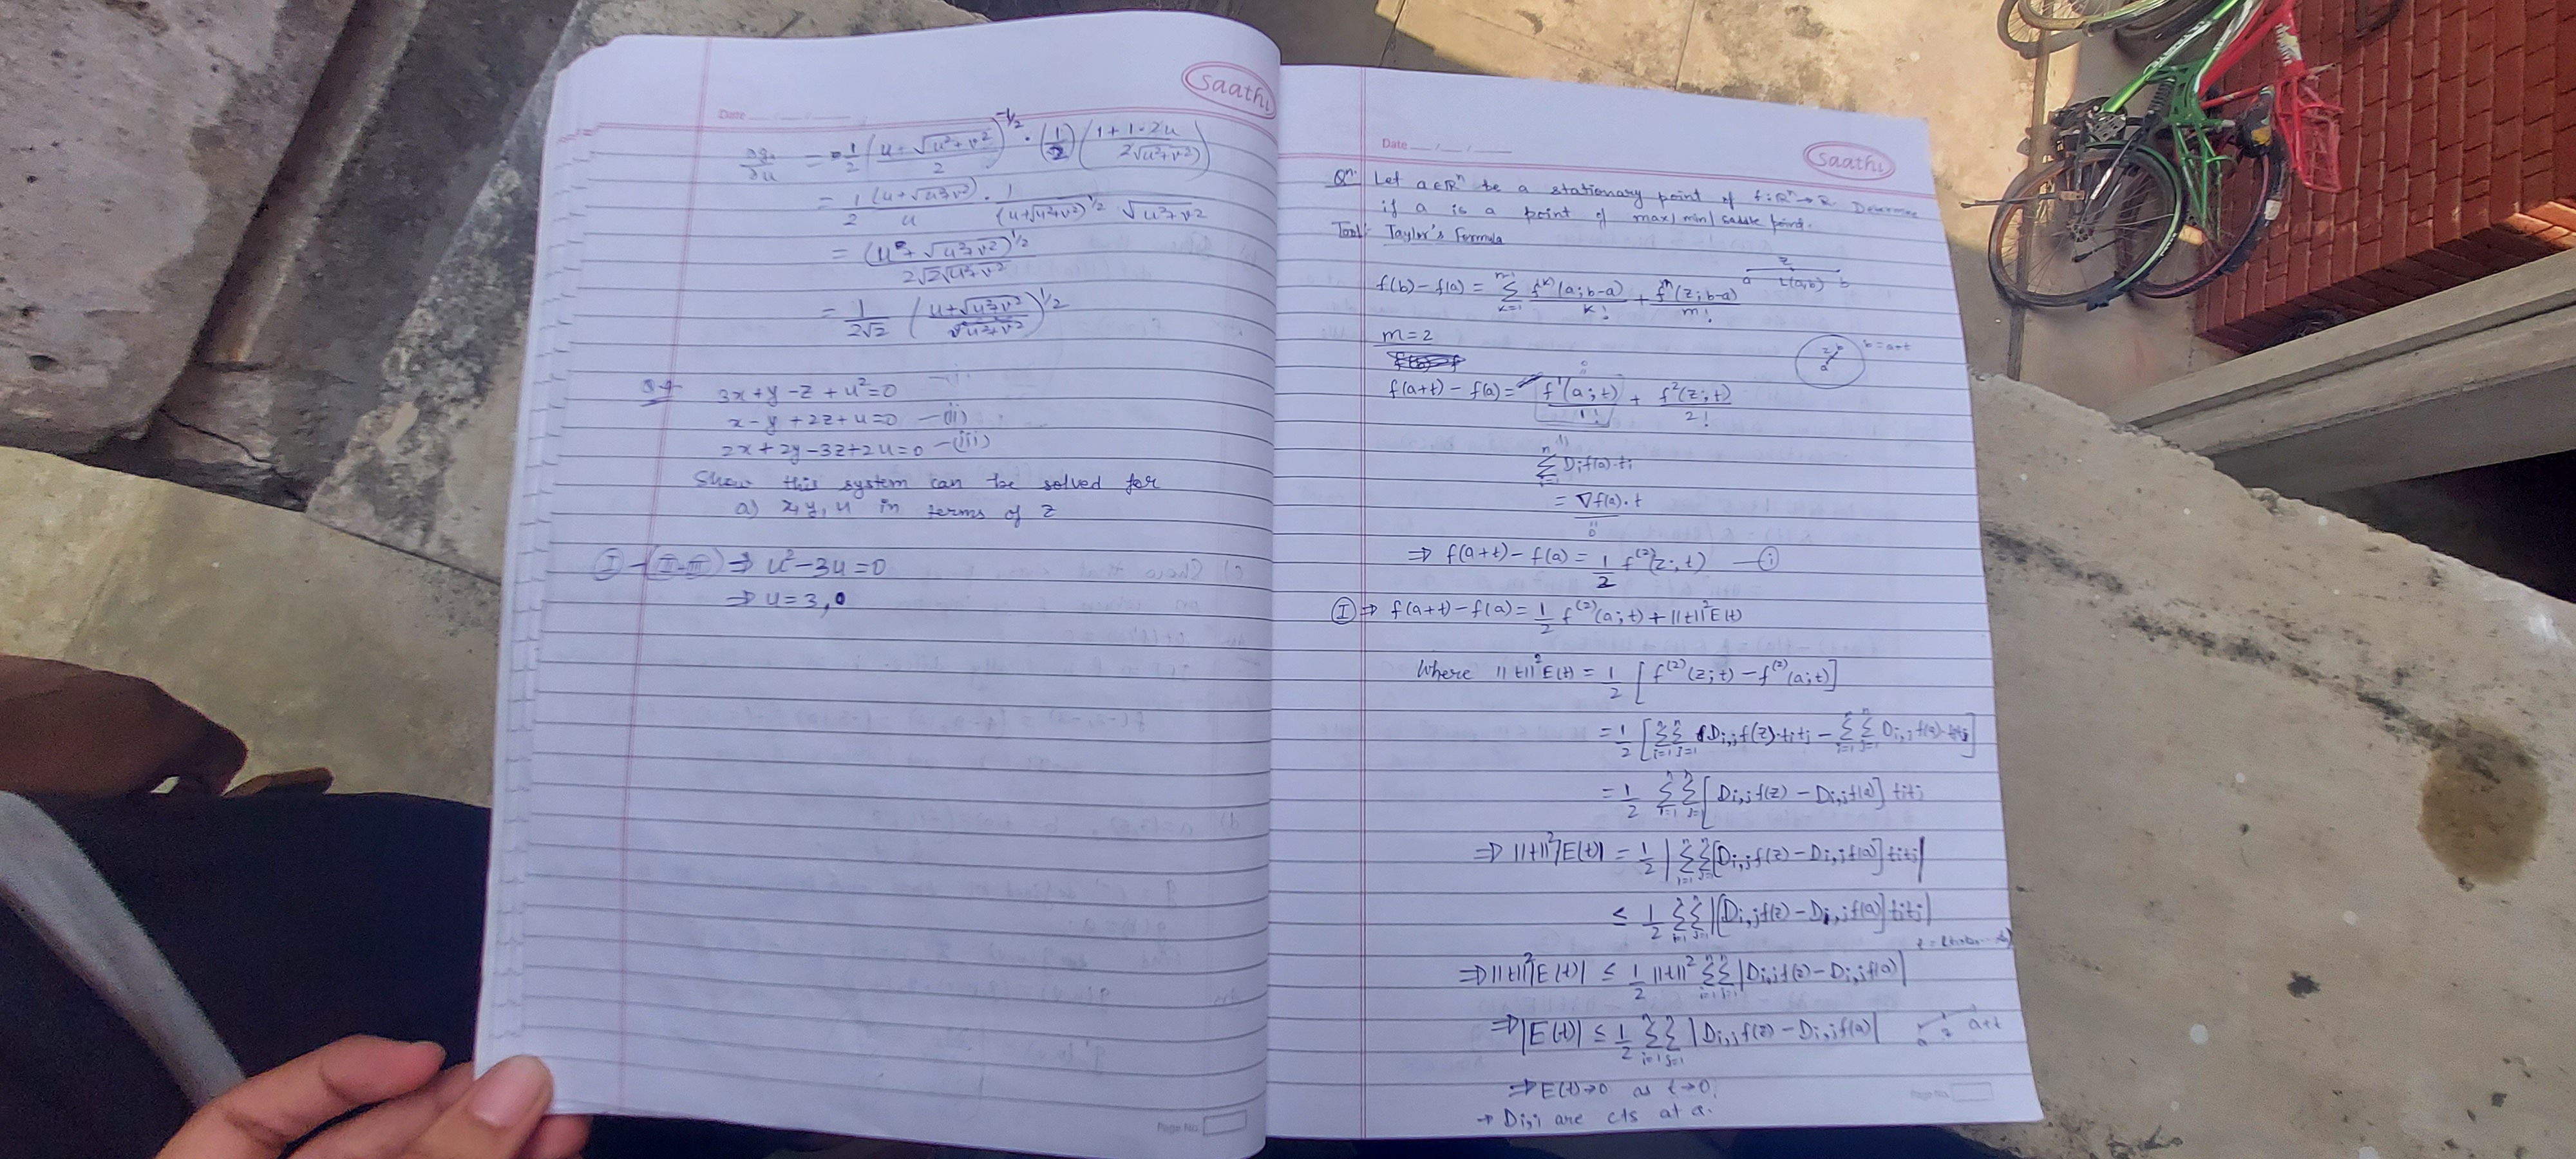 Saathi
Date
∂g₁/∂u = 1/2 (u+√(u²+v²)/2)^(-1/2) · (1/2) (1+1·2u/2√(u²+v²))
= 1/2 (u+√(u²+v²))/u · 1/((u+√(u²+v²))^(1/2) √(u²+v²))
= (u+√(u²+v²))^(1/2)/(2√2√(u²+v²))
= 1/(2√2) ((u+√(u²+v²))/(√u²+v²))^(1/2)
3x+y-z+u²=0
x-y+2z+u=0 -(ii)
2x+2y-3z+2u=0 -(iii)
Show this system can be solved for
a) x,y,u in terms of z
I-(II-III) ⇒ u²-3u=0
⇒ u=3,0
Page No.
Saathi
Date
Qn. Let a∈Rⁿ be a stationary point of f:Rⁿ→R. Determine
if a is a point of max/min/saddle point.
Tool: Taylor's Formula
f(b)-f(a) = Σ_{k=1}^{m-1} f^(k)(a;b-a)/k! + f^m(z;b-a)/m!
z
a L(a,b) b
m=2
z b a b=a+t
f(a+t)-f(a) = f'(a;t)/1! + f²(z;t)/2!
Σ_{i=1}^{n} Dif(a)·ti
= ∇f(a)·t
0
⇒ f(a+t)-f(a) = 1/2 f^(2)(z;t) -(i)
(I) ⇒ f(a+t)-f(a) = 1/2 f^(2)(a;t)+||t||²E(t)
Where ||t||²E(t) = 1/2 [f^(2)(z;t)-f^(2)(a;t)]
= 1/2 [Σ_{i=1}^{n}Σ_{j=1}^{n} Di,jf(z)·titj - Σ_{i=1}^{n}Σ_{j=1}^{n} Di,jf(a)·titj]
= 1/2 Σ_{i=1}^{n}Σ_{j=1}^{n} [Di,jf(z)-Di,jf(a)] titj
⇒ ||t||²|E(t)| = 1/2 |Σ_{i=1}^{n}Σ_{j=1}^{n}[Di,jf(z)-Di,jf(a)] titj|
≤ 1/2 Σ_{i=1}^{n}Σ_{j=1}^{n} |[Di,jf(z)-Di,jf(a)] titj|
⇒ ||t||²|E(t)| ≤ 1/2 ||t||² Σ_{i=1}^{n}Σ_{j=1}^{n} |Di,jf(z)-Di,jf(a)|
⇒ |E(t)| ≤ 1/2 Σ_{i=1}^{n}Σ_{j=1}^{n} |Di,jf(z)-Di,jf(a)|
a z a+t
⇒ E(t)→0 as t→0
→ Di,j are cts at a.
Page No.